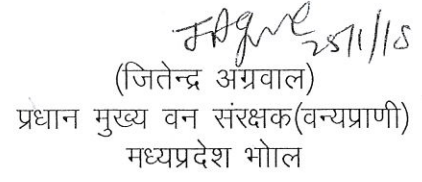 25/1/18
(जितेन्द्र अग्रवाल)
प्रधान मुख्य वन संरक्षक(वन्यप्राणी)
मध्यप्रदेश भोाल